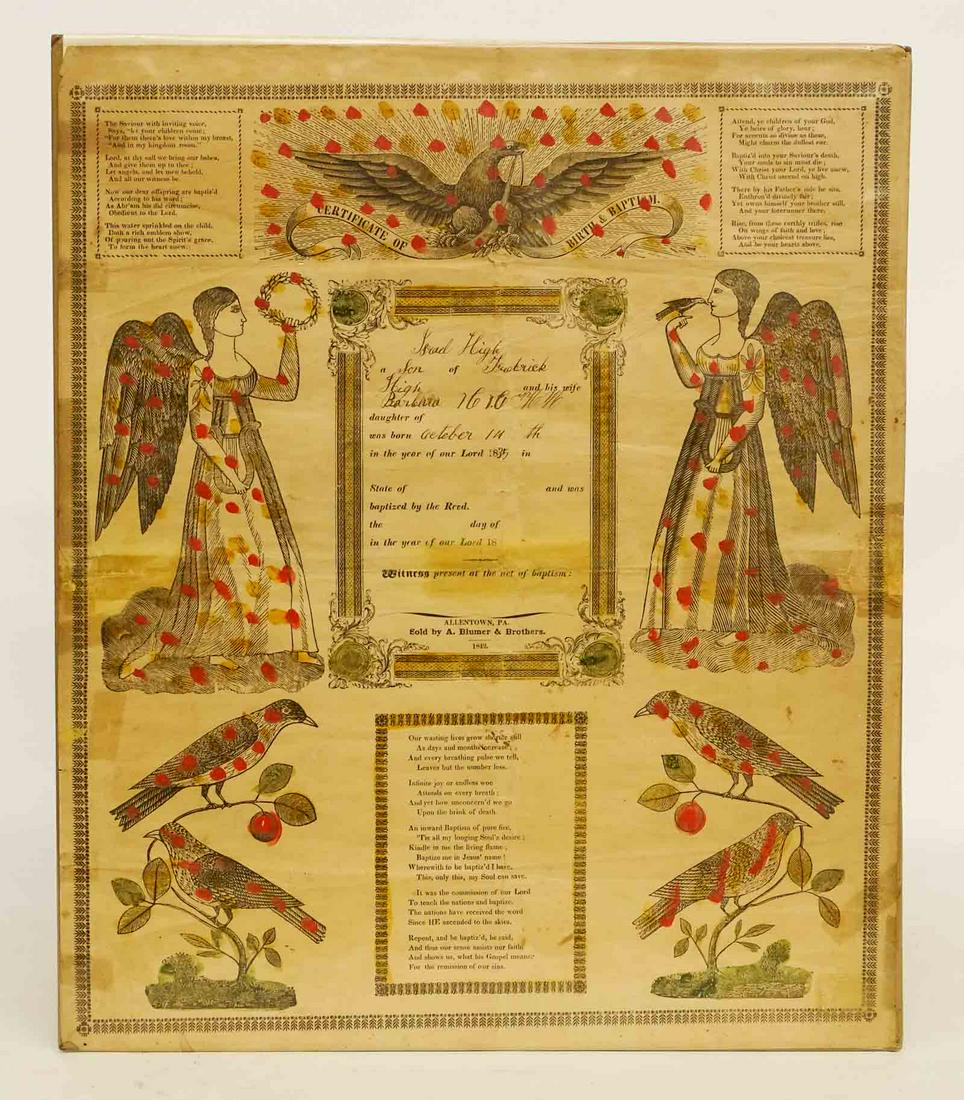 The Saviour with inviting voice,
Says, "let your children come;
"For them there's love within my breast,
"And in my kingdom room."
Lord, at thy call we bring our babes,
And give them up to thee;
Let angels, and let men behold,
And all our witness be.
Now our dear offspring are baptiz'd
According to his word;
As Abr'am his did circumcise,
Obedient to the Lord.
This water sprinkled on the child,
Doth a rich emblem show,
Of pouring out the Spirit's grace,
To form the heart anew.
CERTIFICATE OF BIRTH & BAPTISM.
Attend, ye children of your God,
Ye heirs of glory, hear;
For accents so divine as these,
Might charm the dullest ear.
Baptiz'd into your Saviour's death,
Your souls to sin must die;
With Christ your Lord, ye live anew,
With Christ ascend on high.
There by his Father's side he sits,
Enthron'd divinely fair;
Yet owns himself your brother still,
And your forerunner there.
Rise, from these earthly trifles, rise
On wings of faith and love;
Above your choicest treasure lies,
And be your hearts above.
High
a Son of Fredrick
High and his wife
Barbara
daughter of
was born October 14 th
in the year of our Lord in
State of and was
baptized by the Revd.
the day of
in the year of our Lord 18
Witness present at the act of baptism:
ALLENTOWN, PA.
Sold by A. Blumer & Brothers.
1842.
Our wasting lives grow shorter still
As days and months increase;
And every breathing pulse we tell,
Leaves but the number less.
Infinite joy or endless woe
Attends on every breath;
And yet how unconcern'd we go
Upon the brink of death.
An inward Baptism of pure fire,
'Tis all my longing Soul's desire;
Kindle in me the living flame;
Baptize me in Jesus' name!
Wherewith to be baptiz'd I have,
This, only this, my Soul can save.
It was the commission of our Lord
To teach the nations and baptize.
The nations have received the word
Since HE ascended to the skies.
Repent, and be baptiz'd, he said,
And thus our sense assists our faith
And shows us, what his Gospel means
For the remission of our sins.